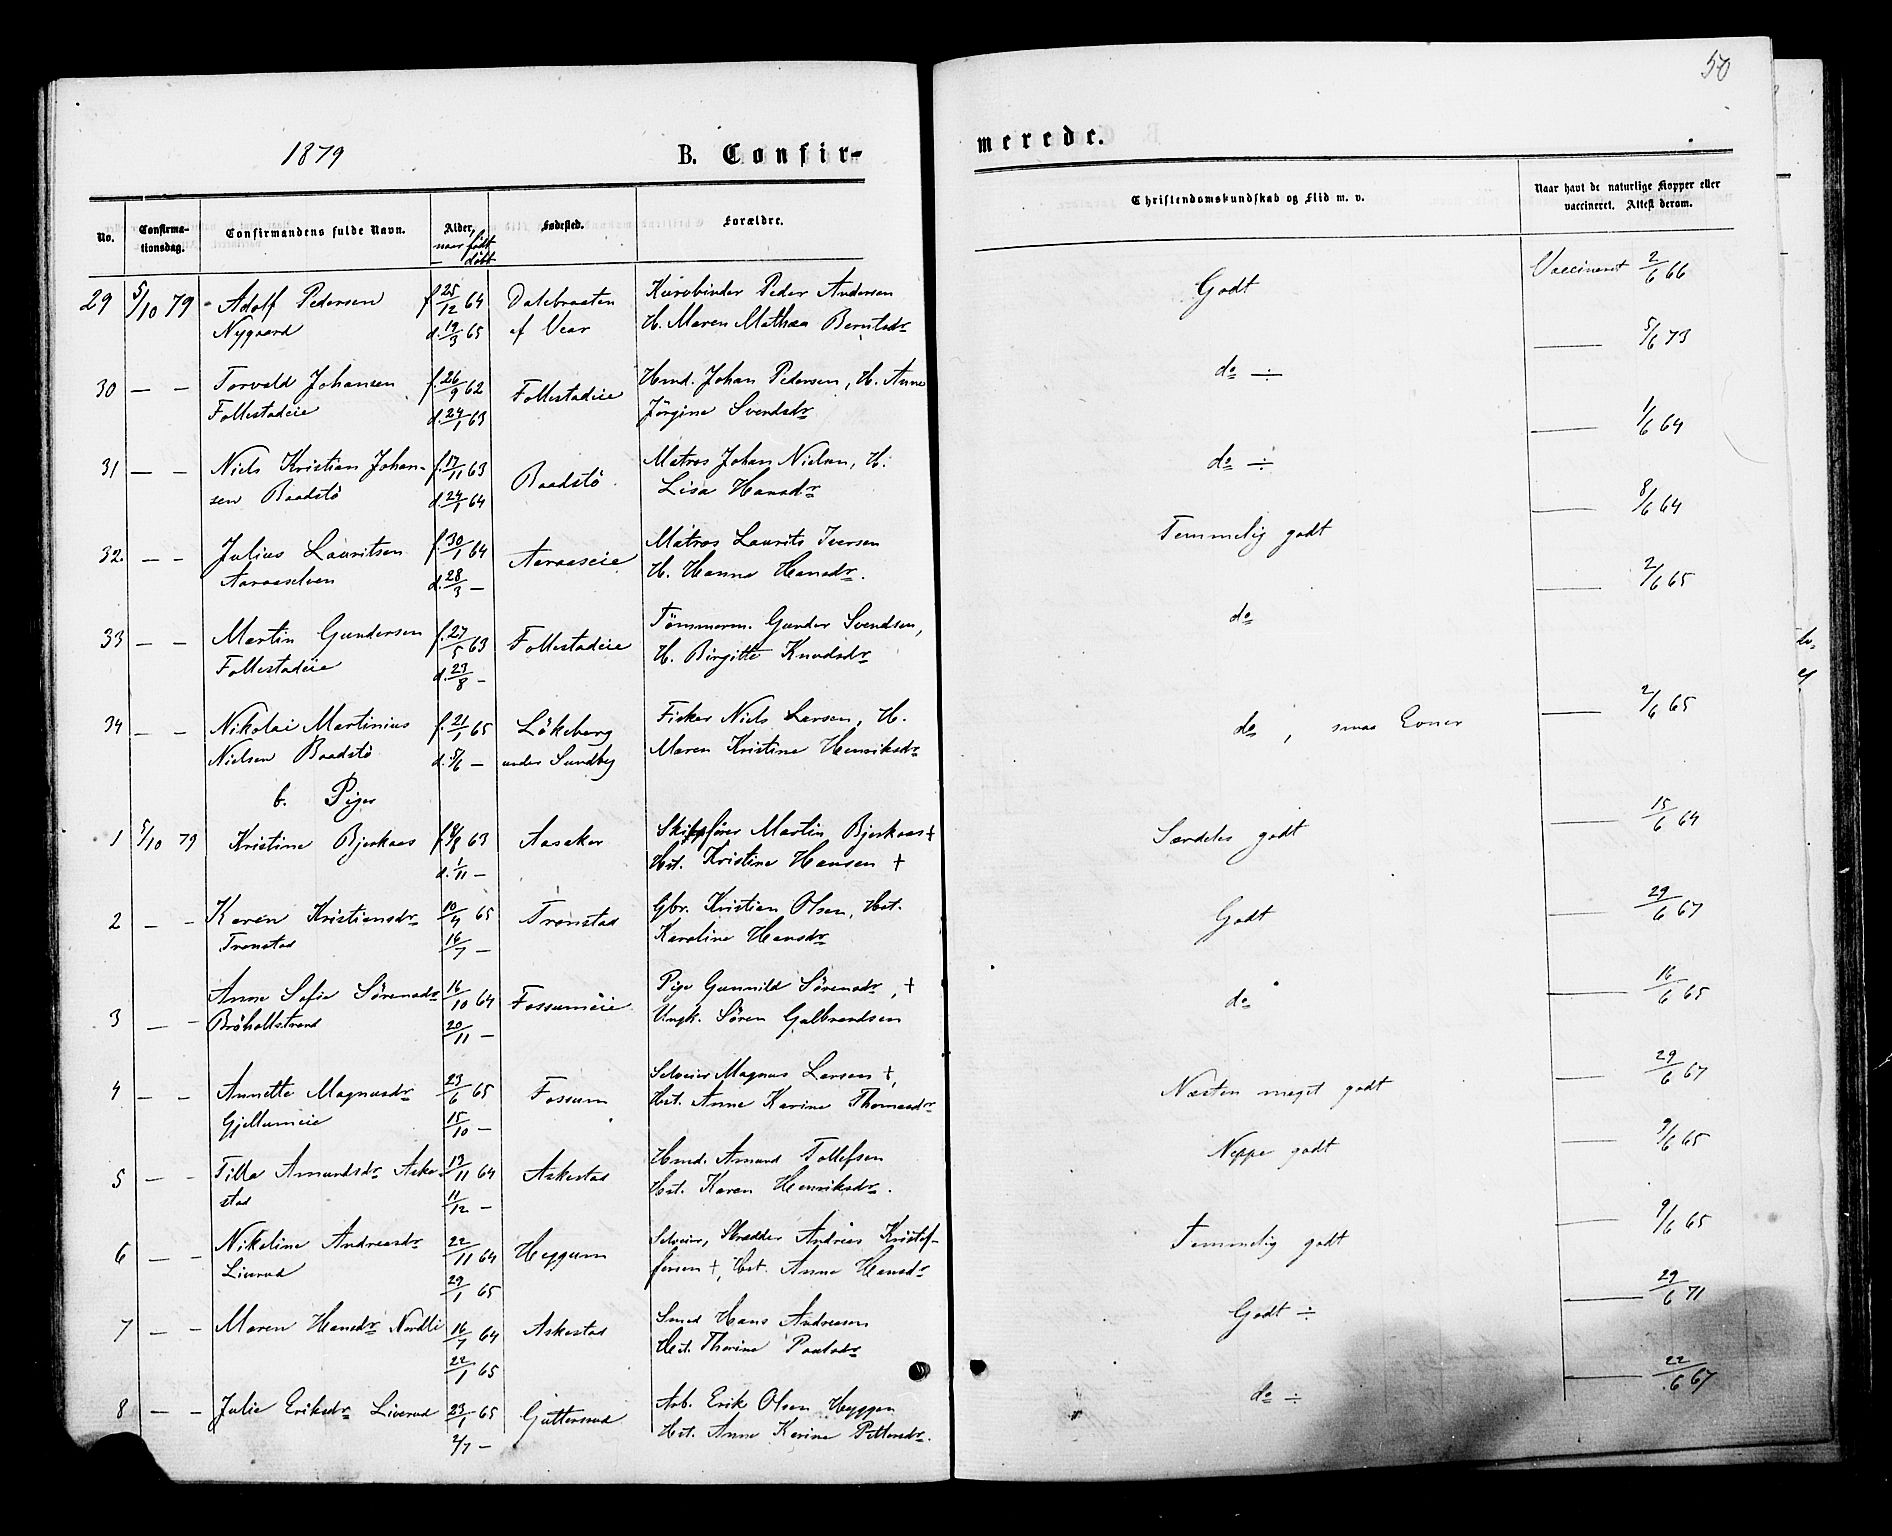 50
1879 B. Confir-
merede.
No. Confirma-tionsdag. Confirmandens fulde Navn. Alder, naar født — døbt Fødested. Forældre. Christendomskundskab og Flid m. v. Naar havt de naturlige Kopper eller vaccineret. Attest derom.
29 5/10 79 Adolf Pedersen f. 25/12 64 Dalebraaten Peder Andersen Godt Vaccineret 2/6 66
Nygaard d. 19/3 65 af Vear H. Maren Mathea Berntsdr
30 — — Torvald Johansen f. 26/9 62 Follestadeie Hmd. Johan Pedersen, H. Anne do ÷ — 5/6 73
Follestadeie d. 24/1 63 Jørgine Svendsdr
31 — — Niels Kristian Johan- f. 17/11 63 Baadstö Matros Johan Nielsen, H. do ÷ — 1/6 64
sen Baadstö d. 24/1 64 Lisa Hansdr
32. — — Julius Lauritsen f. 30/1 64 Aaraaseie Matros Laurits Iversen Temmelig godt — 8/6 64
Aaraaselven d. 28/3 — H. Hanna Hansdr.
33 — — Martin Gundersen f. 27/5 63 Follestadeie Tömmerm. Gunder Svendsen, do — 2/6 65
Follestadeie d. 23/8 — H. Birgitte Knudsdr
34 — — Nikolai Martinius f. 21/1 65 Lökeberg Fisker Niels Larsen, H. do, smaa Evner — 2/6 65
Nielsen Baadstö d. 5/6 — under Sundby Maren Kristine Henriksdr
b. Piger
1 5/10 79 Kristine Bjerkaas f. 8/8 63 Aasaker Skipsfører Martin Bjerkaas + Særdeles godt — 15/6 64
d. 1/11 — Hst. Kristine Hansen +
2 — — Karen Kristiansdr 10/4 65 Tronstad Gbr. Kristian Olsen, Hst. Godt — 29/6 67
Tronstad 16/7 — Karoline Hansdr
3 — — Anne Sofie Sörensdr 16/10 64 Fossumeie Pige Gunnild Sörensdr, + do — 16/6 65
Bröholtstrand 20/11 — Ungk. Sören Gulbrandsen
4 — — Annette Magnusdr 23/6 65 Fossum Selveier Magnus Larsen +, Næsten meget godt — 29/6 67
Gjellumeie 15/10 — Hst. Anne Karine Thomasdr
5 — — Tilla Amundsdr Aske- 13/11 64 Askestad Hmd. Amund Tollefsen Neppe godt — 9/6 65
stad 11/12 — Hst. Karen Henriksdr.
6 — — Nikoline Andreasdr 22/11 64 Heggum Selveier, Skrædder Andreas Kristof- Temmelig godt — 9/6 65
Liverud 29/1 65 fersen +, Hst. Anne Hansdr
7 — — Maren Hansdr Nordli 16/7 64 Askestad Smed Hans Andreasen Godt ÷ — 29/6 71
22/1 65 Hst. Thorine Paulsdr
8 — — Julie Eriksdr Liverud 23/1 65 Guttersrud Arb. Erik Olsen Heggen do ÷ — 22/6 67
2/7 — Hst. Anne Karine Pettersdr.